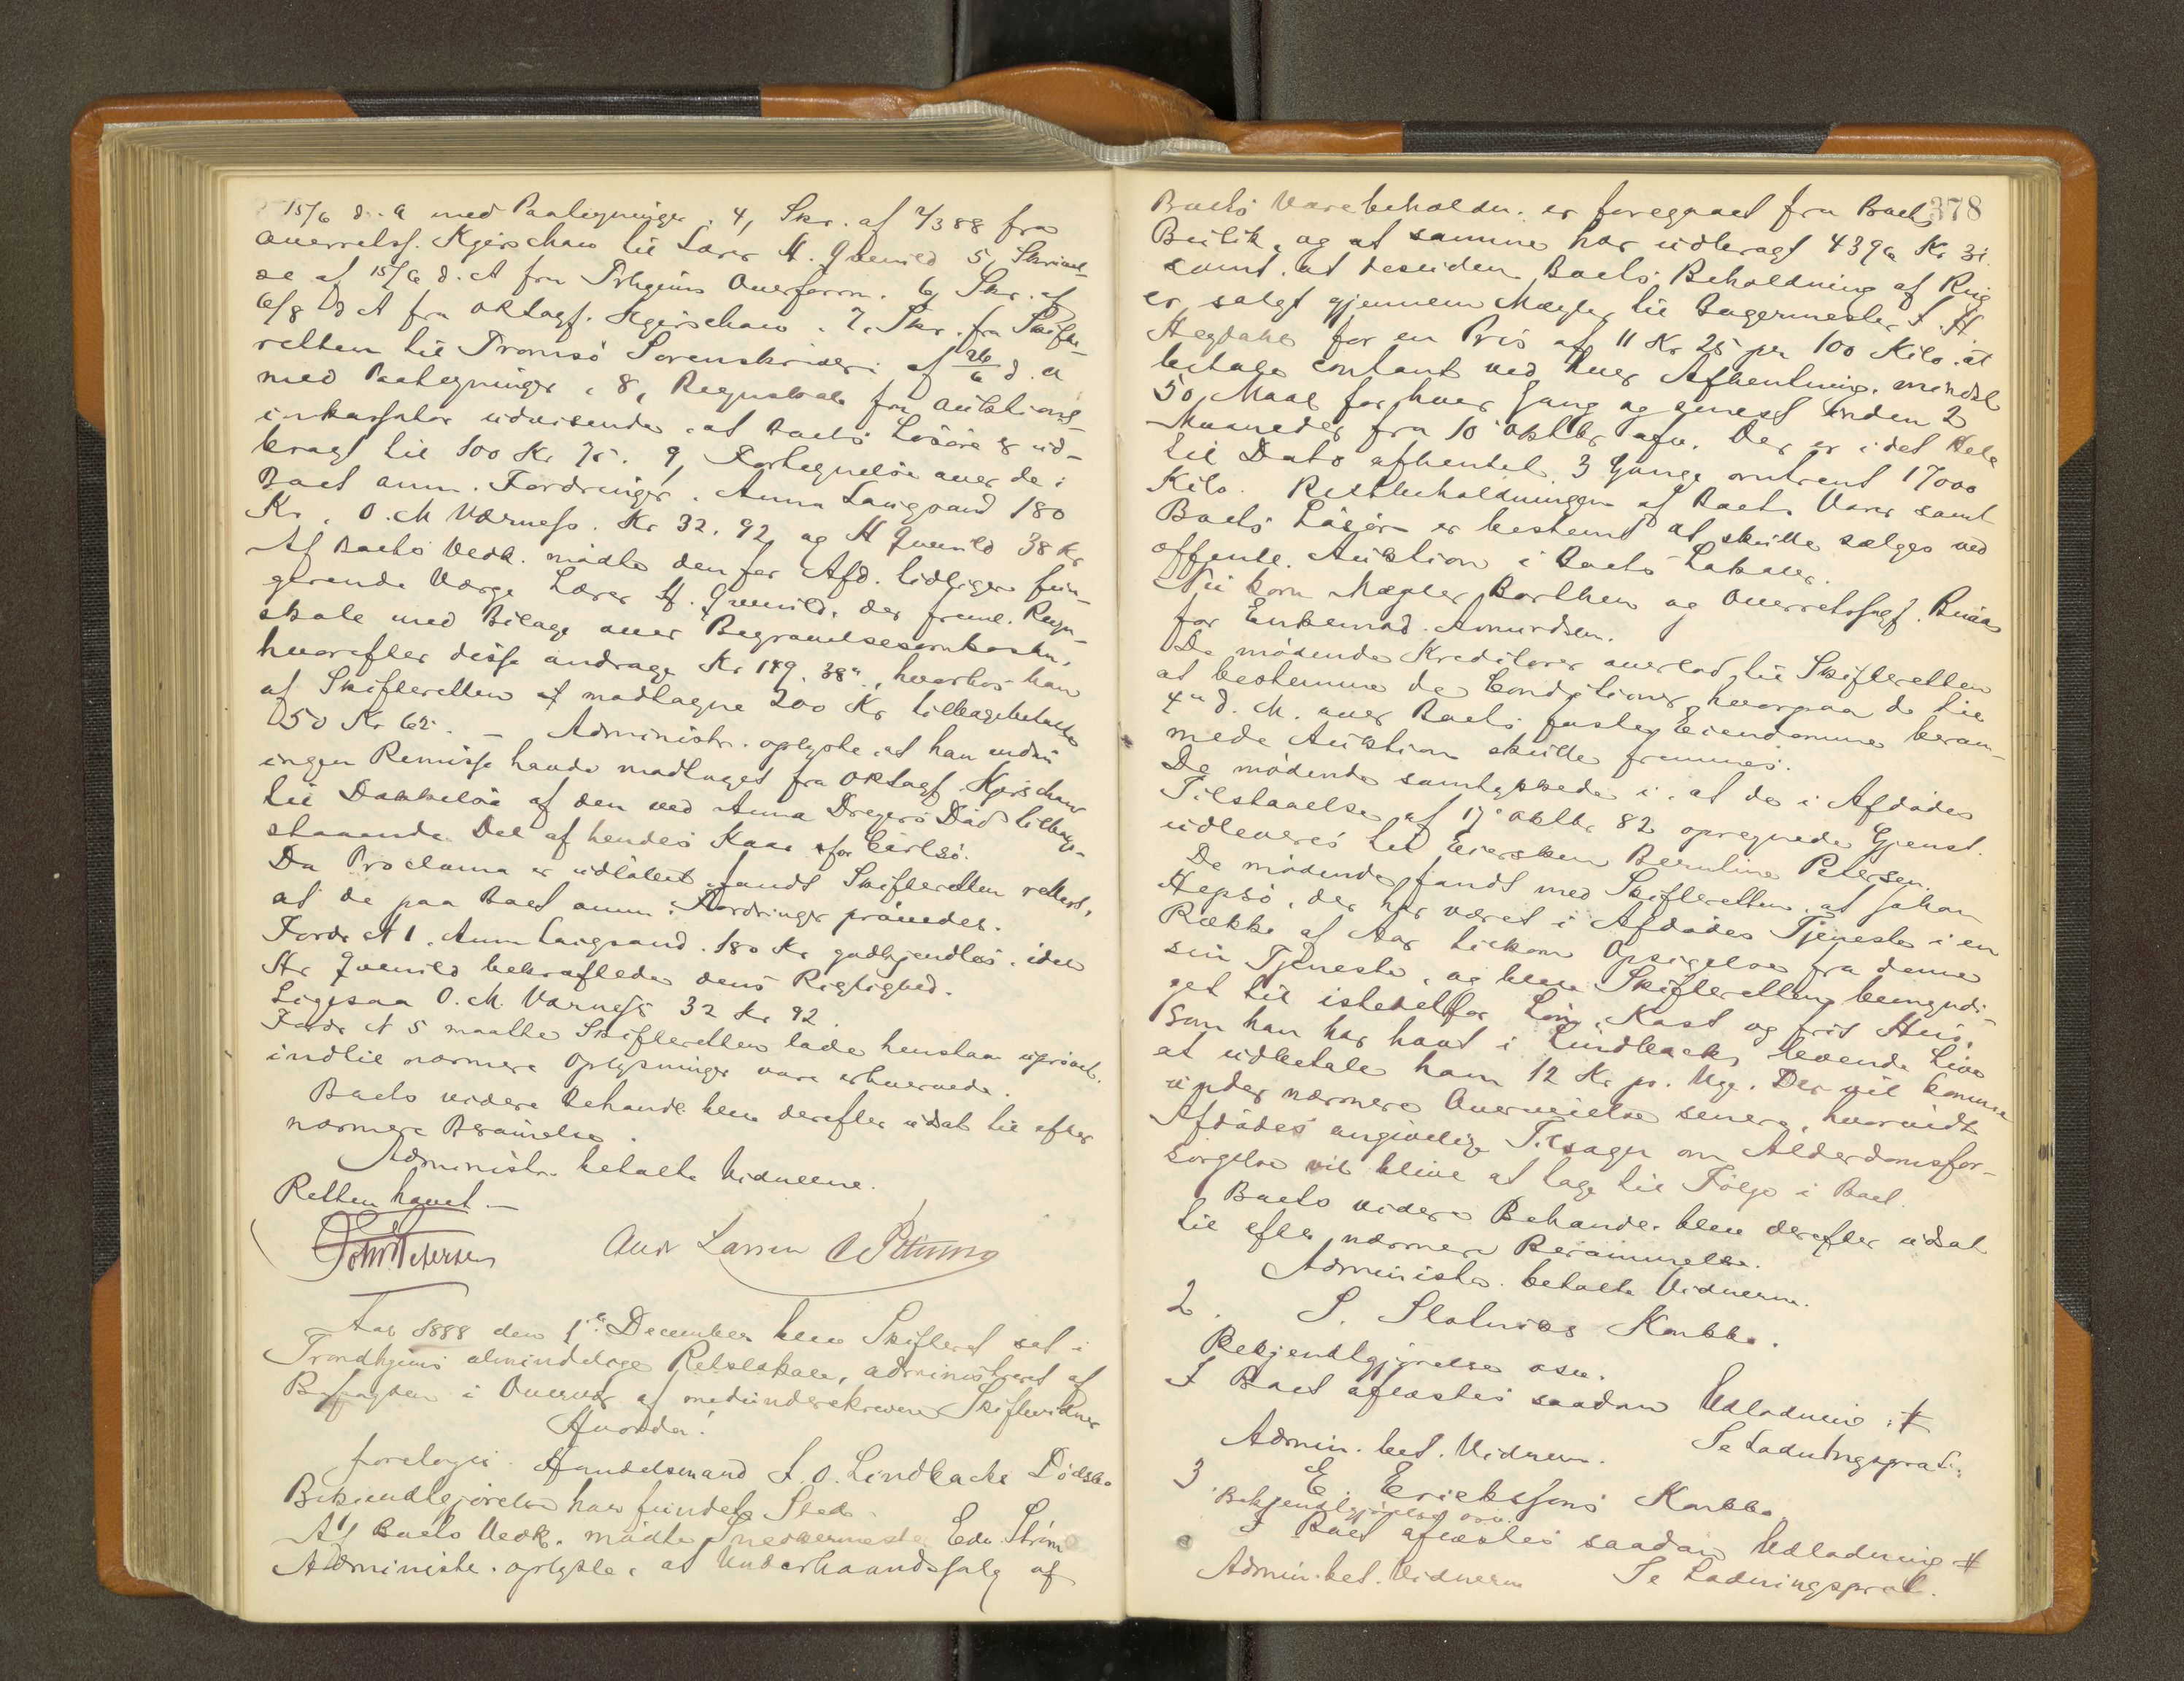 15/6 d. A med Paategninger. 4, Skr. af 2/3 88 fra
Overretsf. Kjerschow til Lærer H. Qvenild 5, Skrivel-
se af 15/6 d. A fra Trhjems Overform. 6, Skr. af
6/8 d A fra ORsagf. Kjerschow. 7, Skr. fra Skifte-
retten til Tromsö Sorenskriver. af 26/6 d. A
med Paategninger, 8, Regnskab fra Auktions-
inkassator udvisende at Boets Lösöre er ud-
bragt til 100 Kr 75. 9, Fortegnelse over de i
Boet anm. Fordringer. Anna Laugsand 180
Kr, O. M Værness. Kr 32. 92, og H Qvenild 38 Kr
Af Boets Vedk. mödte den for Afd. tidligere fun-
gerende Værge Lærer H. Qvenild, der freml. Regn-
skab med Bilage over Begravelsesomkostn.,
hvorefter disse androge Kr 149. 38", hvorhos han
af Skifteretten af modtagne 200 Kr tilbagebetalte
50 Kr 62. – Administr. oplyste at han endnu
ingen Remisse havde modtaget fra ORsagf. Kjerschow
til Dækkelse af den ved Anna Dreyers Död tilbage-
staaende Del af hendes Kaar for Carlsö.
Da Proclama er udlöbet fandt Skifteretten rettest,
at de paa Boet anm. Fordringer prövedes.
Fordr N 1. Anna Laugsand. 180 Kr godkjendtes. idet
Hr Qvenild bekræftede dens Rigtighed.
Ligesaa O. M. Værness 32 Kr 92
Fordr N 5 maatte Skifteretten lade henstaa uprövet.
indtil nærmere Oplysninger vare erhvervede.
Boets videre Behandl. blev derefter udsat til efter
nærmere Berammelse.
Administr. betalte Vidnerne.
Retten hævet. –
Andr Larsen
Aar 1888 den 1ste December blev Skifteret sat i
Trondhjems almindelige Retslokale, administreret af
Byfogden i Overvær af medunderskrevne Skiftevidner
Hvorda!
foretoges. Handelsmand J. O. Lindbacks Dödsbo
Bekjendtgjörelse har fundet Sted.
Af Boets Vedk. mödte Snedkermester Edv. Ström
Administr. oplyste, at Underhaandssalg af
378
Boets Varebeholdn. er foregaaet fra Boets
Butik, og at samme har udbragt 4396 Kr 31.
samt. at desuden Boets Beholdning af Rug
er solgt gjennem Mægler til Bagermester J. H.
Hegdahl for en Pris af 11 Kr 25 pr 100 Kilo. at
betale contant ved hver Afhentning. mindst
50 Maal for hver Gang og senest inden 2
Maaneder fra 10 Oktbr afv. Der er i det Hele
til Dato afhentet 3 Gange omtrent 17000
Kilo. Restbeholdningen af Boets Varer samt
Boets Lösöre er bestemt at skulle sælges ved
offentl. Auktion i Boets Lokaler.
Nu kom Mægler Barthen og Overretssagf. Buaas
for Enkemad. Amundsen.
De mödende Kreditorer overlod til Skifteretten
at bestemme de Conditioner, hvorpaa de til
4" d. M. over Boets faste Eiendomme beram-
mede Auktion skulle fremmes.
De mödende samtykkede i. at de i Afdödes
Tilstaaelse af 17 Oktbr 82 opregnede Gjenst.
udleveres til Eiersken Berntine Petersen.
De mödende fandt med Skifteretten at Johan
Hepsö, der har været i Afdödes Tjeneste i en
Række af Aar tilkom Opsigelse fra denne
sin Tjeneste, og blev Skifteretten bemyndi-
get til istedetfor Lön, Kost og frit Hus,
som han har havt i Lindbacks levende Live
at udbetale ham 12 Kr pr. Uge. Der vil komme
under nærmere Overveielse senere, hvorvidt
Afdödes angivelige Tilsagn om Alderdomsfor-
sörgelse vil blive at tage til Fölge i Boet.
Boets videre Behandl. blev derefter udsat
til efter nærmere Berammelse.
Administr. betalte Vidnerne.
2. S. Slatniks Konkbo.
Bekjendtgjörelse osv.
I Boet aflæstes saadan Udlodning: #
Se Lodningsprot.
Admin. bet. Vidnern.
3 E. Erickssons Konkbo.
Bekjendtgjörelse osv.
I Boet aflæstes saadan Udlodning #
Admin. bet. Vidnerne Se Lodningsprot.